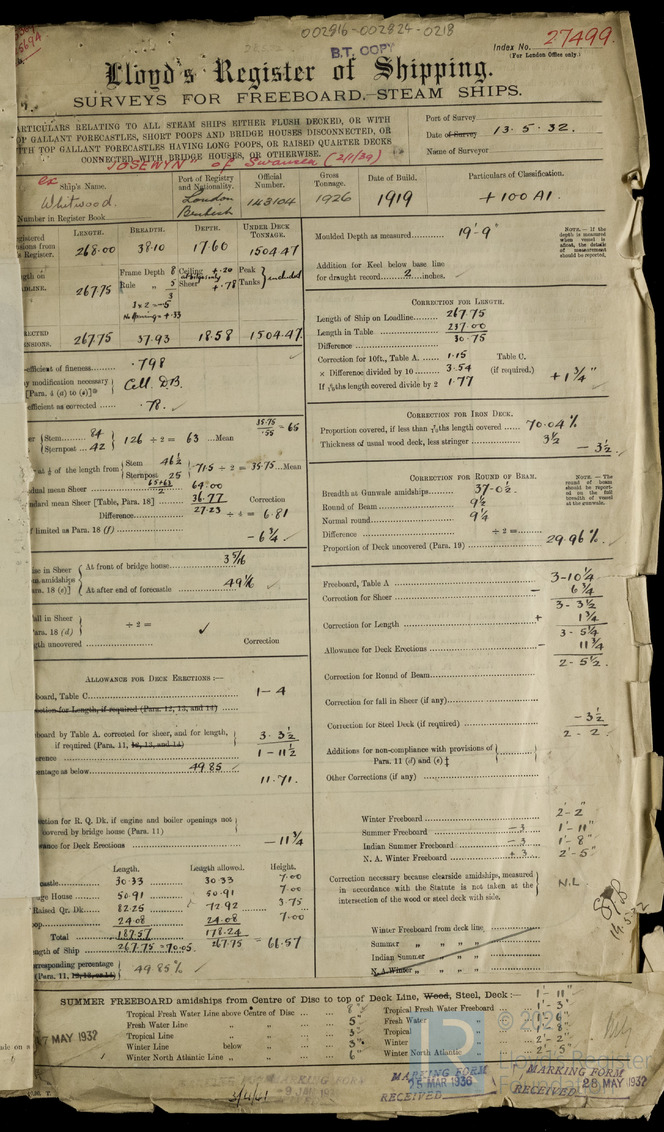 002916-002924-0218
B.T. COPY
Index No. 27499.
(For London Office only.)
Lloyd's Register of Shipping.
SURVEYS FOR FREEBOARD.—STEAM SHIPS.
PARTICULARS RELATING TO ALL STEAM SHIPS EITHER FLUSH DECKED, OR WITH
TOP GALLANT FORECASTLES, SHORT POOPS AND BRIDGE HOUSES DISCONNECTED, OR
WITH TOP GALLANT FORECASTLES HAVING LONG POOPS, OR RAISED QUARTER DECKS
CONNECTED WITH BRIDGE HOUSES, OR OTHERWISE.
Port of Survey
Date of Survey 13.5.32.
Name of Surveyor
"JOSEWYN" of Swansea (2/1/39)
ex
Ship's Name. Port of Registry and Nationality. Official Number. Gross Tonnage. Date of Build. Particulars of Classification.
Whitwood. London British 143104 1926 1919 +100 A1.
Number in Register Book
LENGTH. BREADTH. DEPTH. UNDER DECK TONNAGE.
268.00 38.10 17.60 1504.47
267.75 Frame Depth 8 Ceiling + .20 Peak Tanks } included
Rule „ 5 Sheer + .78
3
3 x 2 = .5
+ .33
267.75 37.93 18.58 1504.47
Moulded Depth as measured 19'-9"
NOTE.—If the depth is measured when vessel is afloat, the details of measurement should be reported.
Addition for Keel below base line
for draught record 2 inches.
CORRECTION FOR LENGTH.
Length of Ship on Loadline 267.75
Length in Table 237.00
Difference 30.75
Correction for 10ft., Table A. 1.15 Table C.
× Difference divided by 10 3.54 (if required.)
If 6/10ths length covered divide by 2 1.77 + 1¾"
efficient of fineness .798
any modification necessary Cell. D.B.
[Para. 4 (a) to (e)]*
efficient as corrected .78.
Stem 84
Sternpost 42 } 126 ÷ 2 = 63 Mean 35.75/.55 = 65
at ⅛ of the length from { Stem 46½ Sternpost 25 } 71.5 ÷ 2 = 35.75 Mean
mean Sheer 65+63/2 64.00
mean Sheer [Table, Para. 18] 36.77 Correction
Difference 27.23 ÷ 4 = 6.81
If limited as Para. 18 (f) - 6¾
CORRECTION FOR IRON DECK.
Proportion covered, if less than 7/10ths length covered 70.04%
Thickness of usual wood deck, less stringer 3½ - 3½
CORRECTION FOR ROUND OF BEAM.
Breadth at Gunwale amidships 37-0½.
Round of Beam 9½
Normal round 9¼
Difference ÷ 2 =
Proportion of Deck uncovered (Para. 19) 29.96%
NOTE.—The round of beam should be reported on the full breadth of vessel at the gunwale.
Rise in Sheer
amidships
Para. 18 (e)]
At front of bridge house 3 5/16
At after end of forecastle 49 1/16
Fall in Sheer
Para. 18 (d)
÷ 2 =
Length uncovered Correction
Freeboard, Table A 3-10¼
Correction for Sheer - 6¾
3-3½
Correction for Length + 1¾
3-5¼
Allowance for Deck Erections - 11¾
2-5½.
Correction for Round of Beam
Correction for fall in Sheer (if any)
Correction for Steel Deck (if required) - 3½
2-2.
Additions for non-compliance with provisions of
Para. 11 (d) and (e) ‡
Other Corrections (if any)
ALLOWANCE FOR DECK ERECTIONS :—
Freeboard, Table C 1-4
Correction for Length, if required (Para. 12, 13, and 14)
Freeboard by Table A. corrected for sheer, and for length,
if required (Para. 11, 12, 13, and 14) 3.3½
Difference 1-11½
Percentage as below 49.85
11.71.
Correction for R. Q. Dk. if engine and boiler openings not
covered by bridge house (Para. 11)
Allowance for Deck Erections - 11¾
Winter Freeboard 2'-2"
Summer Freeboard -3 1'-11"
Indian Summer Freeboard -3 1'-8"
N. A. Winter Freeboard +3 2'-5"
Correction necessary because clearside amidships, measured
in accordance with the Statute is not taken at the
intersection of the wood or steel deck with side. N.L.
14.5.32
Length. Length allowed. Height.
Forecastle 30.33 30.33 7.00
Bridge House 50.91 50.91 7.00
Raised Qr. Dk. 82.25 72.92 3.75
Poop 24.08 24.08 7.00
Total 187.57 178.24
Length of Ship 267.75 = 70.05. 267.75 = 66.57
Corresponding percentage
(Para. 11, 12, 13, or 14) 49.85%
Winter Freeboard from deck line
Summer „ „ „ „
Indian Summer „ „ „ „
N. A. Winter „ „ „ „
SUMMER FREEBOARD amidships from Centre of Disc to top of Deck Line, Wood, Steel, Deck :— 1'-11"
Tropical Fresh Water Line above Centre of Disc 8" Tropical Fresh Water Freeboard 1'-3"
Fresh Water Line „ „ 5" Fresh Water „ 1'-6"
Tropical Line „ „ 3" Tropical „ 1'-8"
Winter Line below „ 3" Winter „ 2'-2"
Winter North Atlantic Line „ „ 6" Winter North Atlantic „ 2'-5"
7 MAY 1932
MARKING FORM
25 MAR 1936
RECEIVED
MARKING FORM
RECEIVED 28 MAY 1932
Lloyd's Register
Foundation